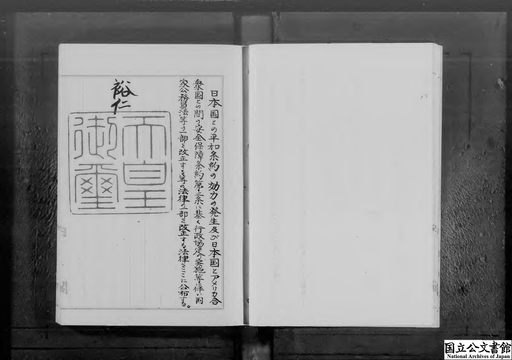 日本国との平和条約の効力の発生及び日本国とアメリカ合
衆国との間の安全保障条約第三条に基く行政協定の実施等に伴い国
家公務員法等の一部を改正する等の法律の一部を改正する法律をここに公布する。
裕仁
天皇
御璽
国立公文書館
National Archives of Japan